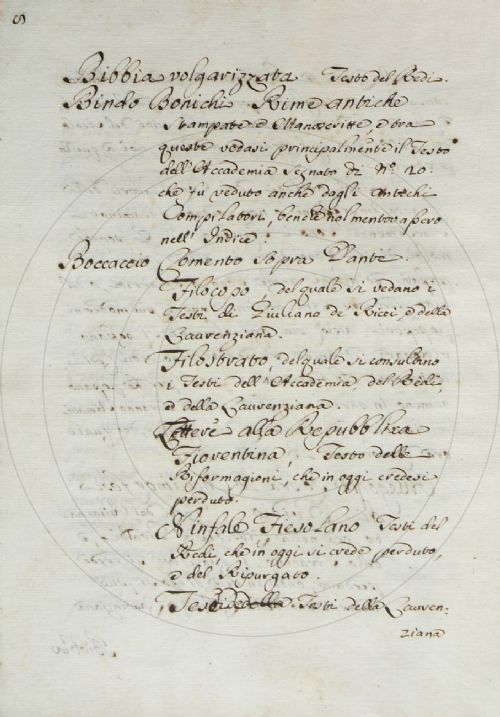 8
Bibbia volgarizzata Testo del Redi.
Bindo Bonichi Rime antiche
Stampate e Manoscritte, e tra
queste vedasi principalmente il Testo
dell'Accademia segnato di N.º 10.
che fu veduto anche dagli antichi
Compilatori, benchè nol mentovapero
nell'Indice.
Boccaccio Comento sopra Dante.
Filocopo, del quale si vedano i
Testi di Giuliano de' Ricci, e della
Laurenziana.
Filostrato, del quale si consultino
i Testi dell'Accademia del Redi,
e della Laurenziana
Lettere alla Repubblica
Fiorentina, Testo delle
Riformagioni, che in oggi credesi
perduto.
Ninfale Fiesolano Testi del
Redi, che in oggi si crede perduto,
e del Ripurgato.
Teseide Testi della Lauren:
ziana